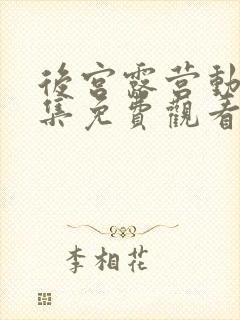 後宮露营動
集免費觀看
李相花